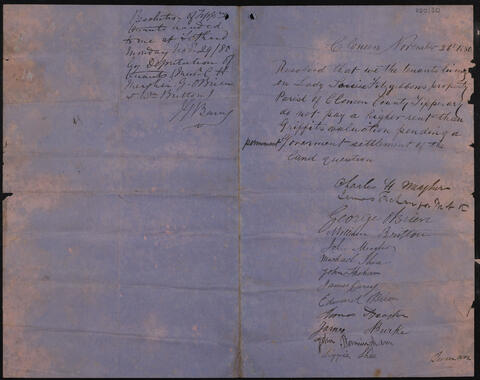 Resolution of Tippy
tenants handed
to me at Fethard
Monday Nov 29/80
by Deputation of
tenants Charles H
Meagher G. O'Brien
& Wm Britton
Cloneen November 28th 1880
Resolved that we the tenants living
on Lady Louisa Fitzgibbons property
Parish of Cloneen County Tipperary
do not pay a higher rent than
Griffiths valuation pending a
permanent Goverment settlement of the
Land question
Charles H Meagher
George O'Brien
William Britton
John Meagher
Michael Shea
John
James
Edward O'Brien
James
James Burke
John
Lizzie Shea